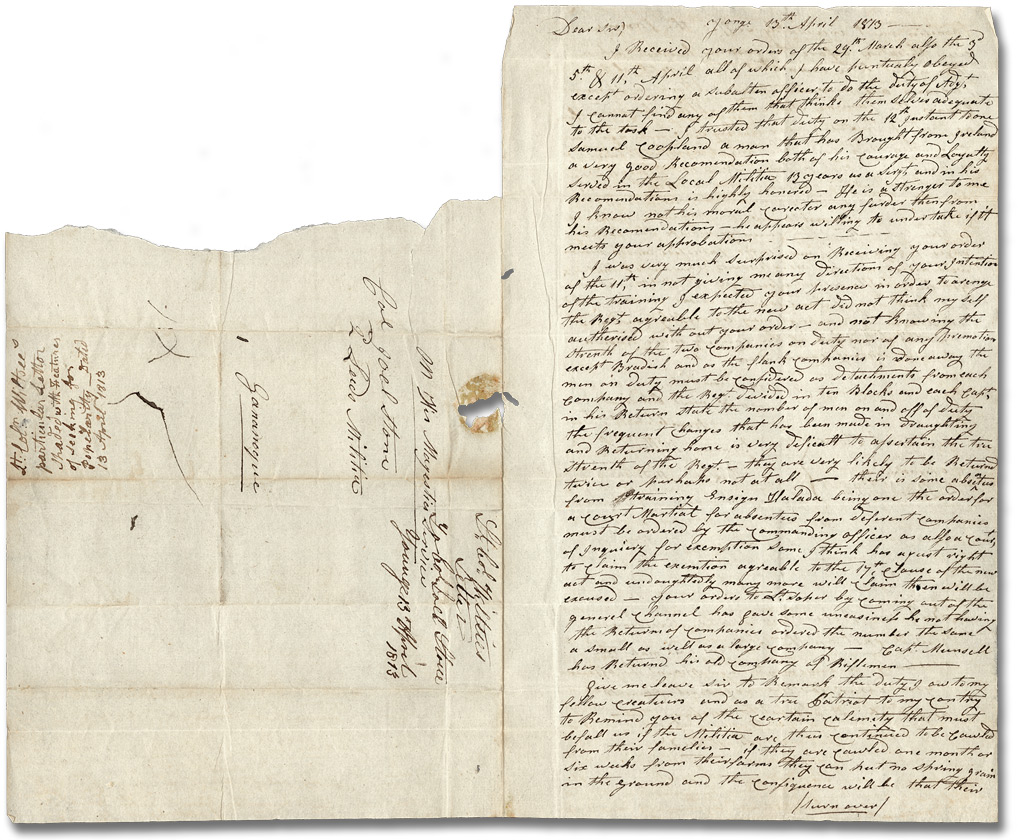 Dear Sir) Yonge 13th April 1813
I Received your orders of the 29th March also the 3d
5th & 11th April all of which I have puntualy obeyed
except ordering a subalten officer to do the duty of Adjt
I cannot find any of them that thinks them selves adequate
to the task — I trusted that duty on the 12th Instant to one
Samuel Coopland a man that has Brought from Ireland
a very good Recomendation both of his Courage and Loyalty
served in the Local Militia 13 years as a Sergt and in his
Recomendations is highly honored — He is a stranger to me
I know not his moral carector any furder then from
his Recomendations — he appears willing to undertake if it
meets your approbations
I was very much surprised on Receiving your order
of the 11th in not giving me any directions of your Intention
of the training I expected your presence in order to arenge
the Regt agreable to the new act did not think my self
autherised with out your order — and not knowing the
strenth of the two companies on duty nor of any promotion
except Bradish and as the flank companies is done away the
men on duty must be considered as detachments from each
Company and the Regt divided in ten Blocks and each Capt
in his Return state the number of men on and off of duty
the frequent changes that has been made in draughting
and Returning home is very dificult to assertain the true
Strenth of the Regt — they are very likely to be Returnd
twice or perhaps not at all — their is some absentees
from training Ensign Halada being one the order for
a Court Martial for absentees from deferent companies
must be ordered by the commanding officer as also a court
of Inquiery for exemption some I think has a just right
to claim the exemtion agreable to the 17th Clause of the new
act and undoughtedly many more will claim then will be
excused — your orders to Lt Soper by coming out of the
general channel has gave some uneasiness he not having
the Returns of companies ordered the number the same
a small as well as a large company — Capt Munsell
has Returnd his old company of Riflemen
Give me leave sir to Remark the duty I ow to my
fellow creatuers and as a true Patriot to my contry
to Remind you of the cartain calemity that must
befall us if the Militia are thus continued to be cawled
from their families — if they are cawled one month or
six weeks from their farms they can put no spring grain
in the ground and the consiquence will be that their
/turn over/
On His Majesties Service
Col Joel Stone
2d Leeds Militia
Gananoque
Lt Col McNees
Letter
Yonge 13 April
1813
Lt. Col. McNees
particular Letter
Shaded with Features
of seeking for
Popelarity — Dated
13 April 1813